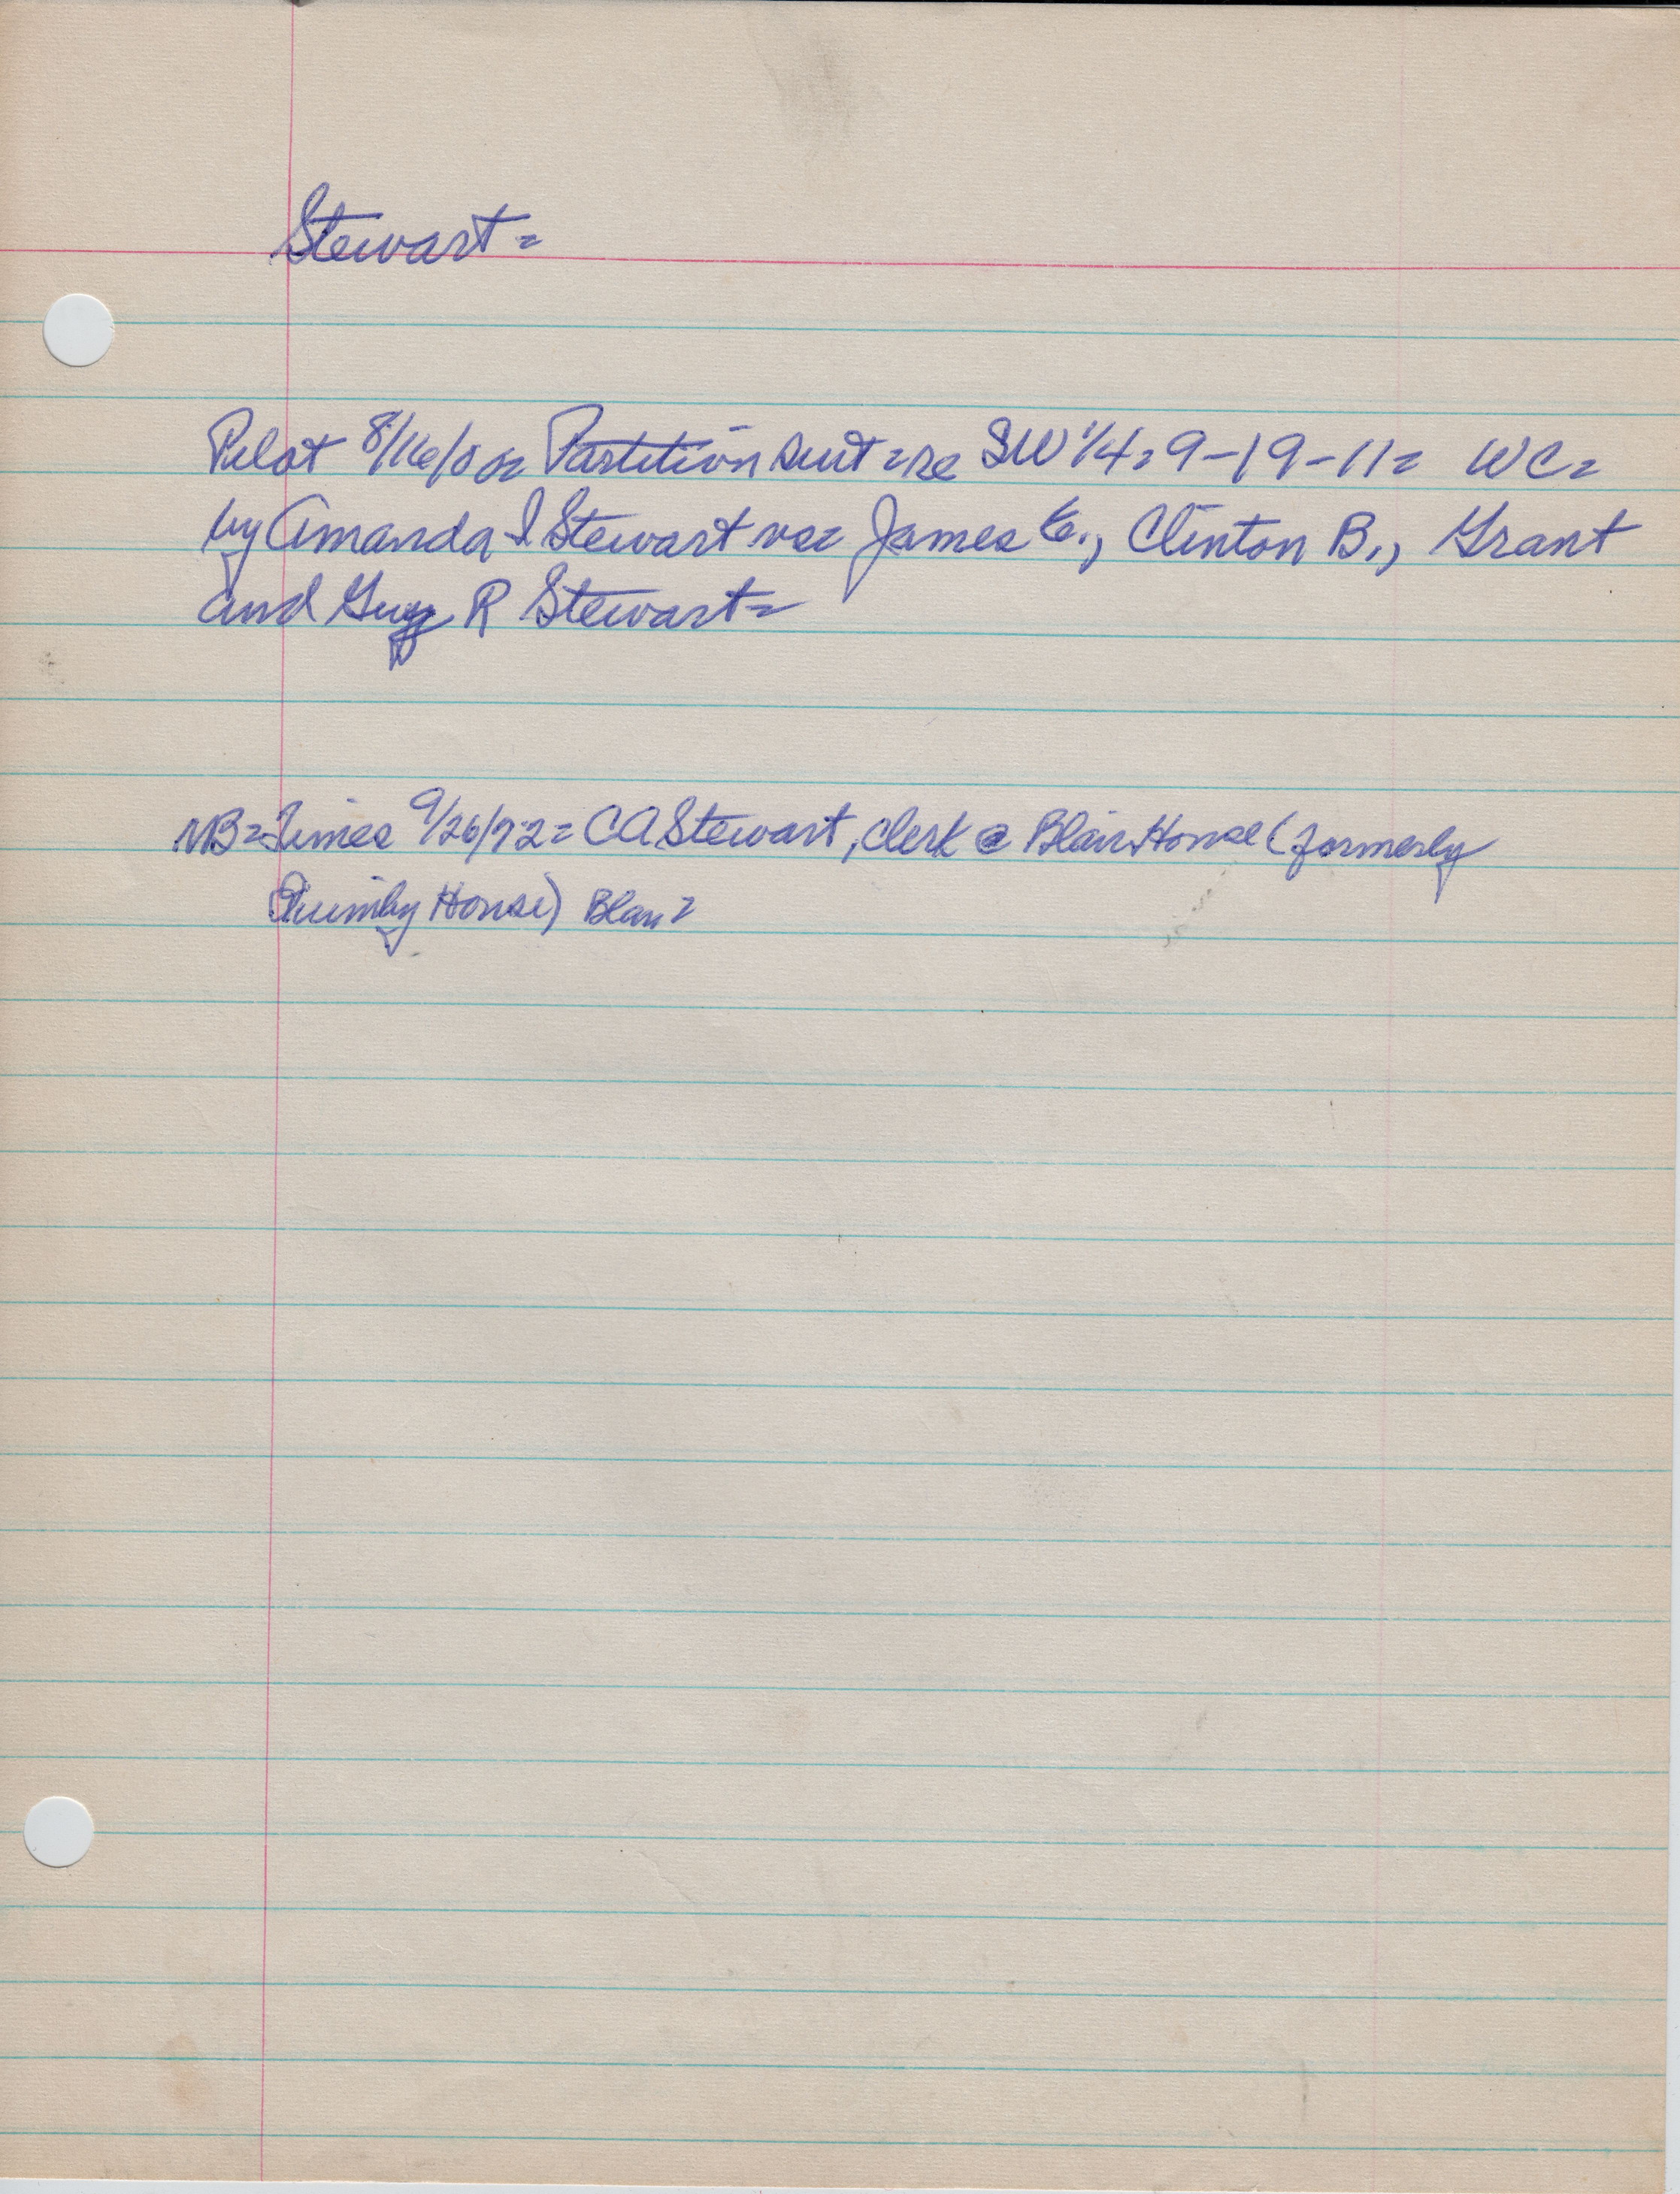 Stewart =
Pilot 8/16/00 = Partition suit = re SW 1/4 = 9-19-11 = WC =
by Amanda I Stewart vs = James E., Clinton B., Grant
and Guy R Stewart =
NB = Times 9/26/72 = CA Stewart, clerk @ Blair House (formerly
Quimby House) Blair =